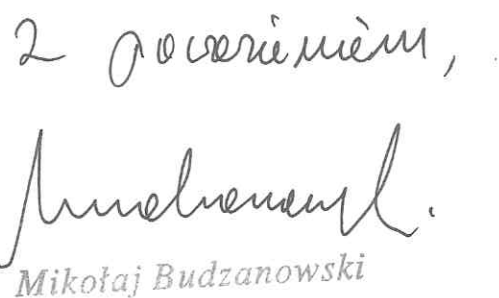 Z poważaniem,
Mikołaj Budzanowski